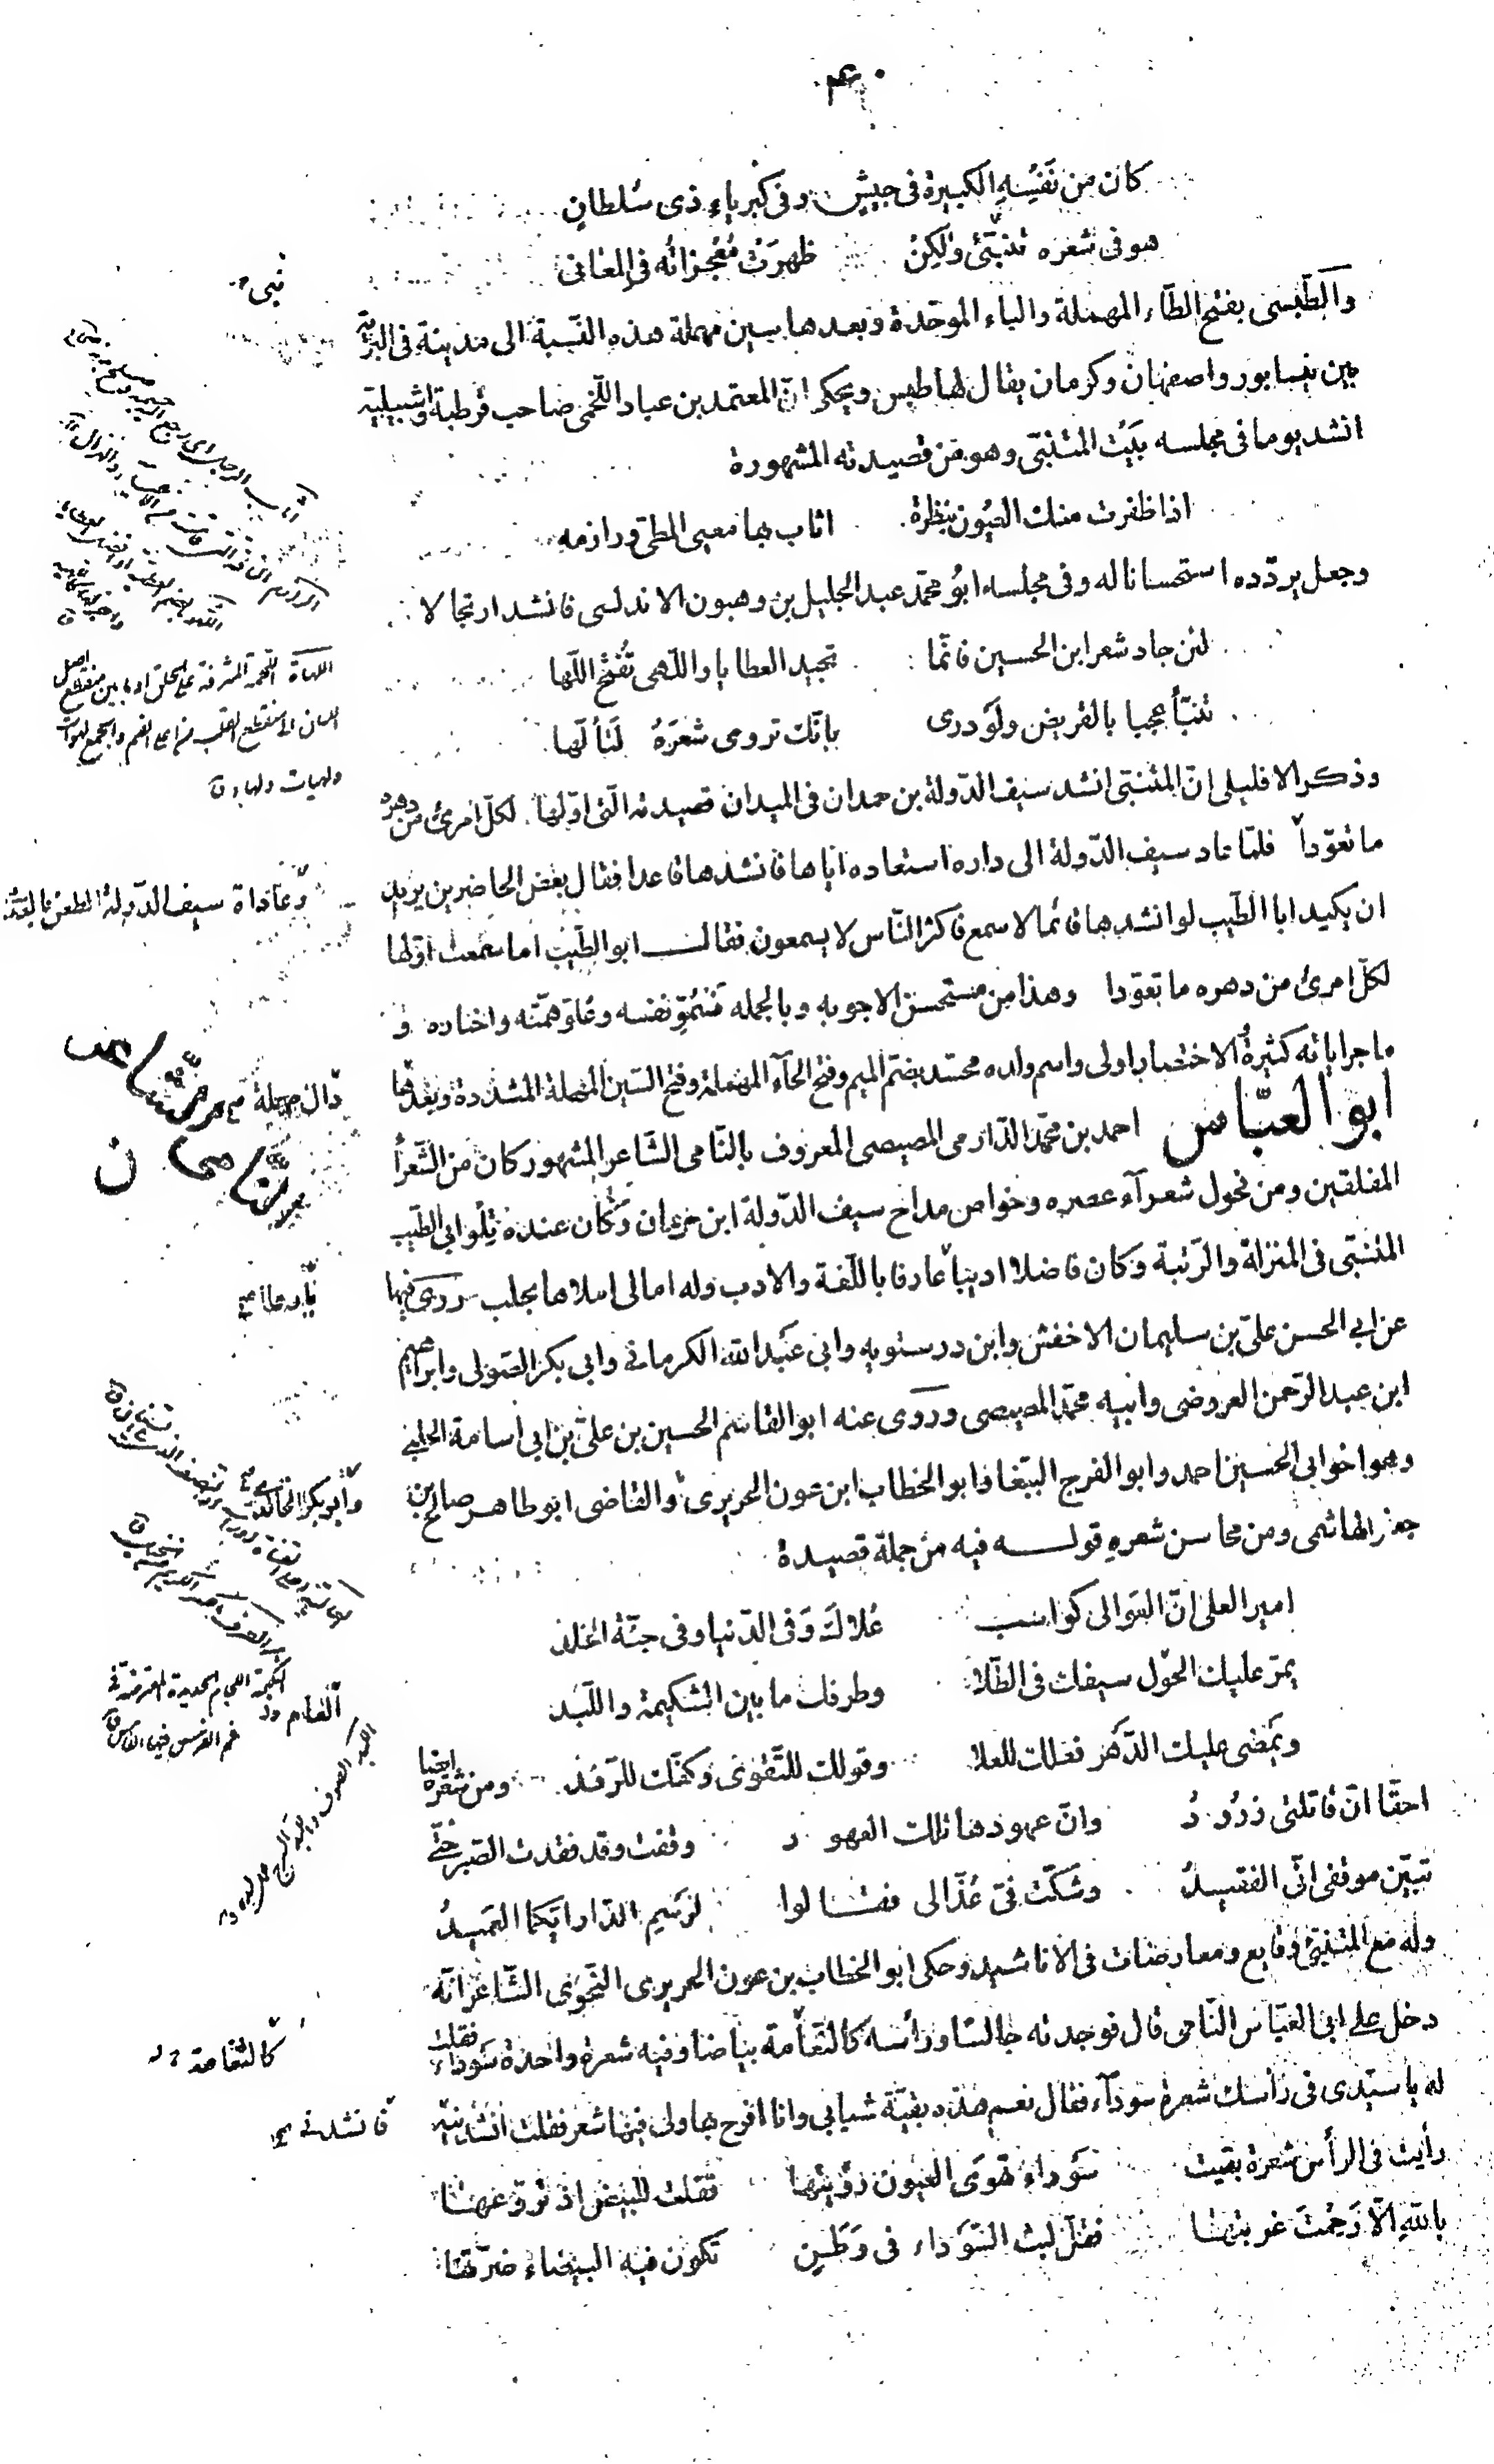 ۴۰
كان من نَفسِهِ الكبيرة فى جيش وفى كبرياءِ ذى سُلطانٍ
هو فى شعره تنبّئ ولكِنْ ظهرَتْ مُعْجزاتُه فى المعانى
والطّبسى بفتح الطّاء المهملة والباء الموحّدة وبعدها سين مهملة هذه النّسبة الى مدينة فى البرّيّة
بين نيسابور واصفهان وكرمان يقال لها طبس ويحكى انّ المعتمد بن عباد اللّخمى صاحب قرطبة واشبيلية
انشد يوما فى مجلسه بيت المتنبّى وهو من قصيدته المشهورة
اذا ظفرت منك العيُون بنظرة اثاب بها معيى المطىّ ورازمه
وجعل يردّده استحسانا له وفى مجلسه ابُو محمّد عبد الجليل بن وهبون الاندلسى فانشد ارتجالا
لئن جاد شعر ابن الحسين فانّما تجيد العطايا واللّهى تُفتح اللّها
تنبّأ عجبا بالقريض ولو درى بانّك تروى شعرَهُ لتألّها
وذكر الافليلى انّ المتنبّى انشد سيف الدّولة بن حمدان فى الميدان قصيدته الّتى اوّلها لكلّ امرئ من دهره
ما تعوّدا فلمّا عاد سيف الدّولة الى داره استعاده اياها فانشدها قاعدا فقال بعض الحاضرين يريد
ان يكيد ابا الطّيب لو انشدها قائما لاسمع فاكثر النّاس لا يسمعون فقال ابو الطّيب اما سمعت اوّلها
لكلّ امرئ من دهره ما تعوّدا وهذا من مستحسن الاجوبه وبالجمله فسُمُوّ نفسه وعلوّ همّته واخباره و
ماجراياته كثيرة الاختصار اولى واسم ولده محسّد بضمّ الميم وفتح الحآء المهملة وفتح السّين المهملة المشدّدة وبعدها
ابو العبّاس احمد بن محمّد الدّارمى المصيصى المعروف بالنّامى الشّاعر المشهور كان من الشّعرآء
المفلقين ومن فحول شعرآء عصره وخواص مداح سيف الدّولة ابن حمدان وكان عنده تِلو ابى الطّيب
المتنبّى فى المنزلة والرّتبة وكان فاضلا اديبا عارفا باللّغة والادب وله امالى املاها بحلب روى فيها
عن ابى الحسن علىّ بن سليمان الاخفش وابن درستويه وابى عبد الله الكرمانى وابى بكر الصّولى وابراهيم
ابن عبد الرّحمن العروضى وابيه محمّد المصيصى وروى عنه ابو القاسم الحسين بن علىّ بن ابى اسامة الحلبى
وهو اخو ابى الحسين احمد وابو الفرج الببّغا وابو الخطاب ابن عون الحريرى والقاضى ابو طاهر صالح بن
جعفر الهاشمى ومن محاسن شعرهِ قوله فيه من جملة قصيدة
امير العلى انّ العوالى كواسب عُلاكَ وفى الدّنيا وفى جنّة الخلد
يمرّ عليك الحول سيفك فى الطّلا وطرفك ما بين الشكيمة واللّبد
ويمضى عليك الدّهر فعلك للعلا وقولك للتّقوى وكفّك للرّفد ومن شعره ايضا
احقّا انّ قاتلتى زرُودُ وانّ عهودها تلك العهود وقفت وقد فقدت الصّبر حتّى
تبيّن موقفى انّى الفقيدُ وشكّت فىّ عُذّالى فقالوا لرَسْمِ الدّار ايّكما العميدُ
وله مع المتنبّئ وقايع ومعارضات فى الاناشيد وحكى ابو الخطاب بن عون الحريرى النّحوى الشّاعر انّه
دخل على ابى العبّاس النّامى قال فوجدته جالسًا ورأسه كالثّغامة بياضا وفيه شعرة واحدة سوداء فقلت
له يا سيّدى فى رأسك شعرة سودآء فقال نعم هذه بقيّة شبابى وانا افرح بها ولى فيها شعر فقلت انشدنيه
رأيت فى الرأس شعرة بقيت سَوداء تهوَى العيون رؤيتها فقلت للبيض اذ تروّعها
بالله الّا رَحِمْتَ غربتها فقلّ لبث السّوداء فى وَطَنٍ تكون فيه البيضاء ضرّتها
نبى
اللهاة اللحمة المشرفة على الحلق او ما بين منقطع اصل
اللسان الى منقطع القلب من اعلى الفم والجمع لهوات
ولهيات ولهاء ق
وعادة سيف الدّولة
دال مهملة
بالنّامى
وابو بكر الخالدى
الشكيمة اللجام الحديدة المعترضة فى
فم الفرس فيها الفأس
كالثغامة
فانشدنى